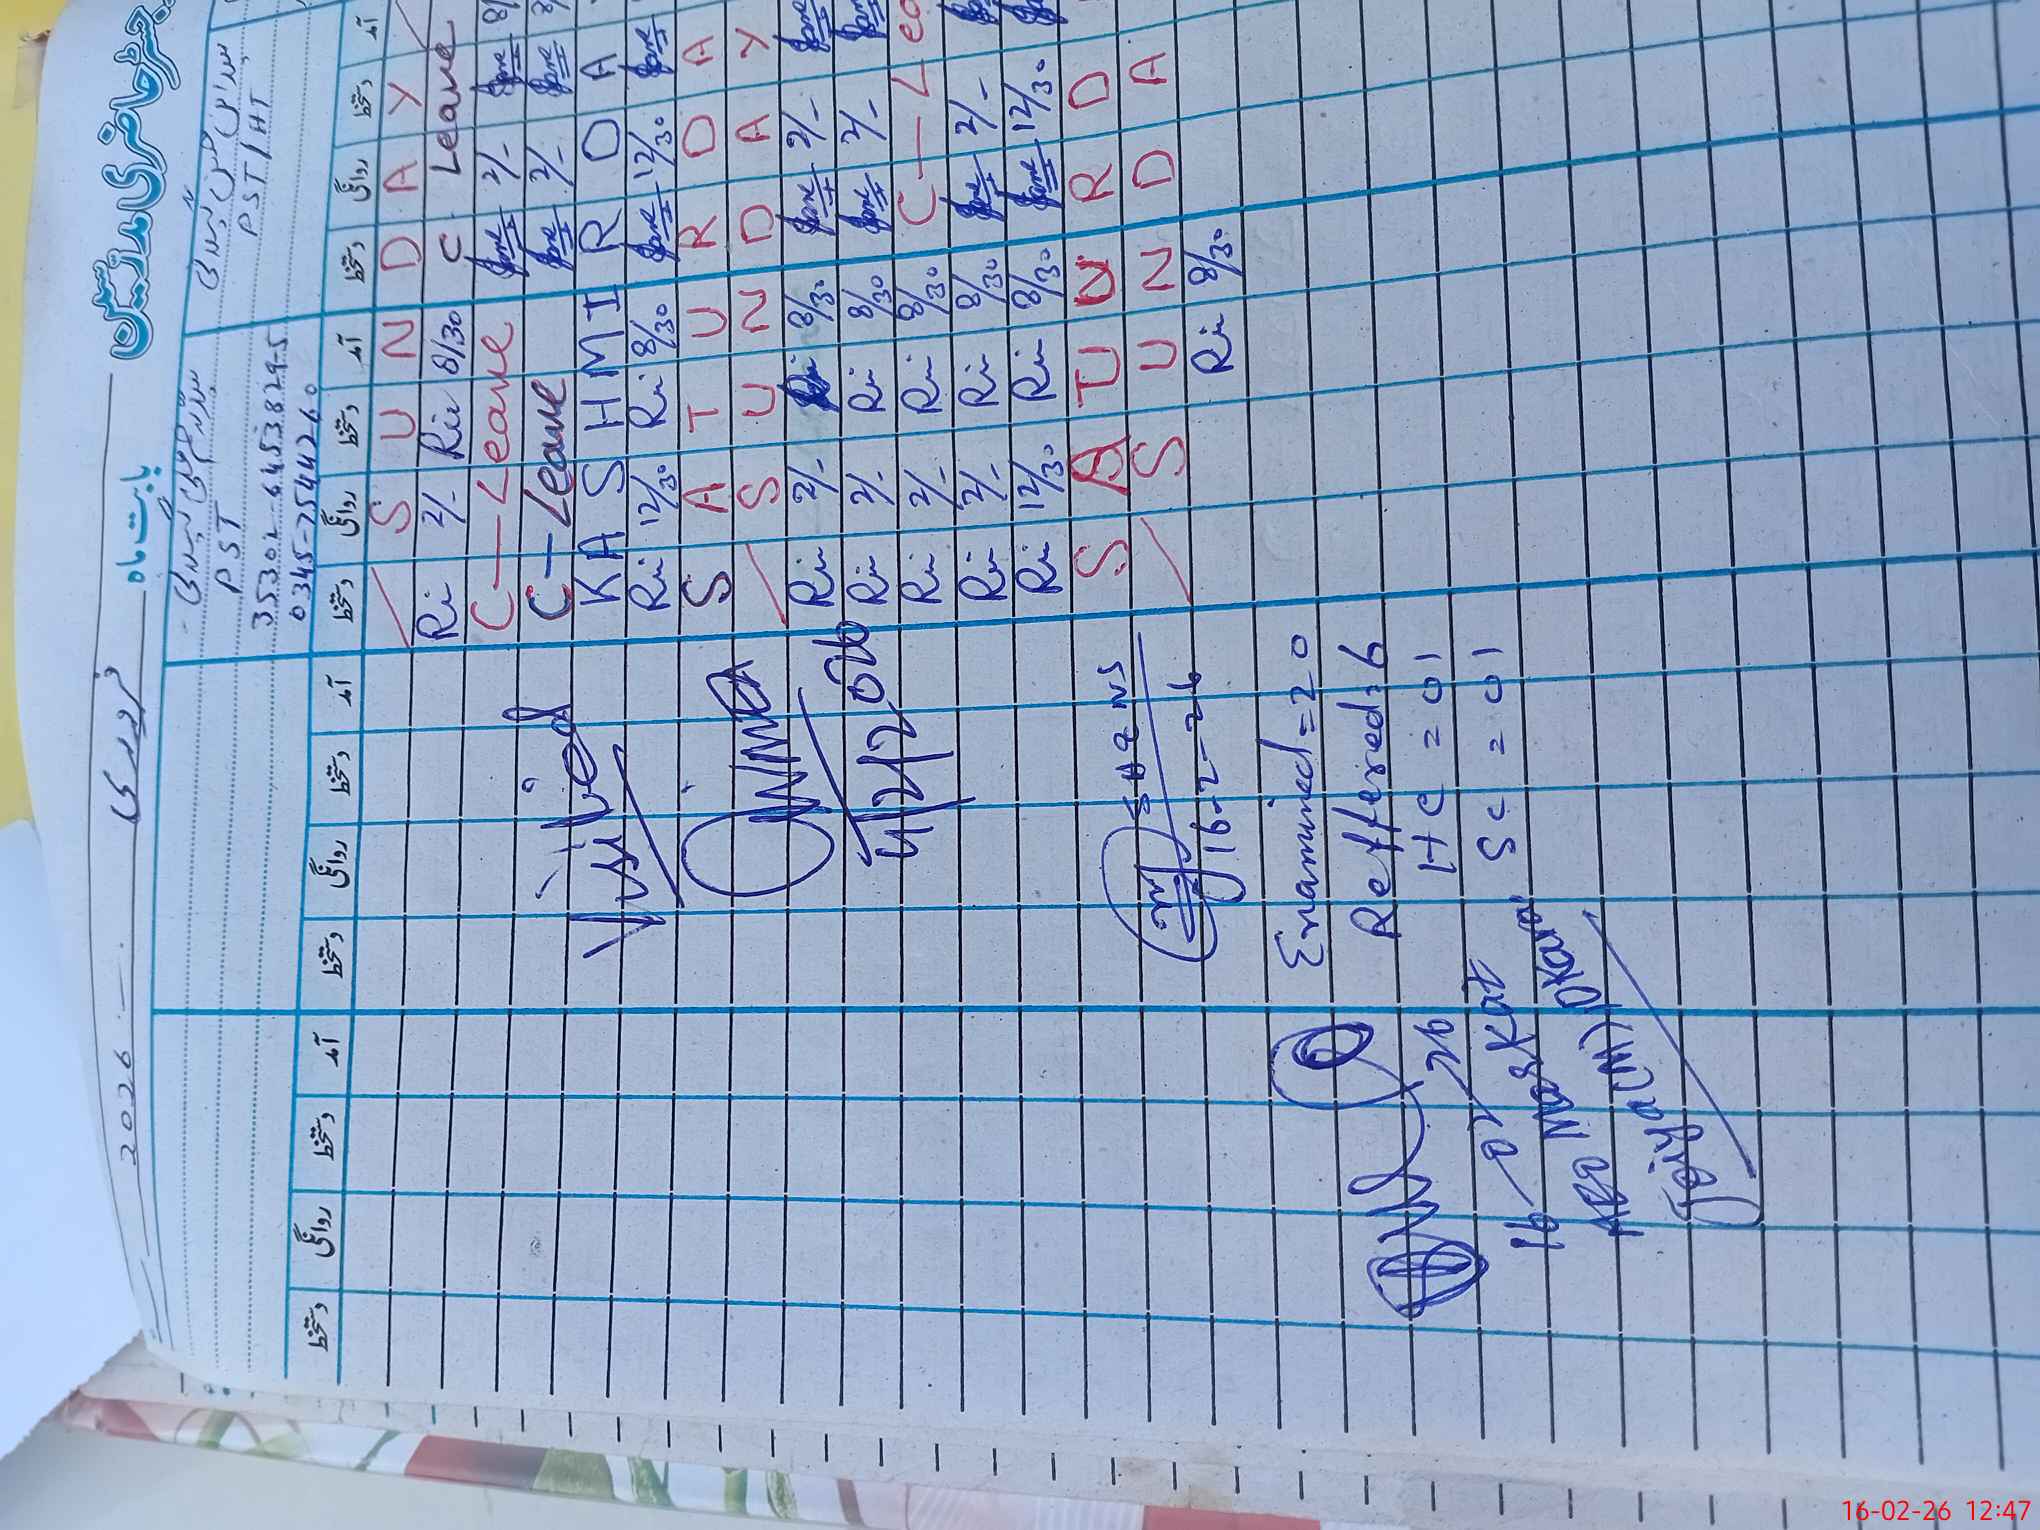 رجسٹر حاضری مدرسین
بابت ماہ فروری 2026
PST / HT
PST
35302-6453829-5
0345-7544260
آمد دستخط روانگی دستخط آمد دستخط روانگی دستخط آمد دستخط روانگی دستخط آمد دستخط روانگی دستخط
S U N D A Y
Ri 8/30 Ri 2/- C Leave
C—Leave 2/-
C—Leave 2/-
K A S H M I R D A
Ri 8/30 Ri 12/30 12/30
S A T U R D A
S U N D A Y
Ri 8/30 Ri 2/- 2/-
Ri 8/30 Ri 2/- 2/-
Ri 8/30 Ri 2/- C — Lea
Ri 8/30 Ri 2/- 2/-
Ri 8/30 Ri 12/30 12/30
S A T U R D
S U N D A
Ri 8/30
Visited
4/2/2026
S H & NS
16-2-26
Enamined = 20
Reffered = 6
HC = 01
SC = 01
16-02-26
AEO Markaz
Jaiya (M) Okara
16-02-26 12:47